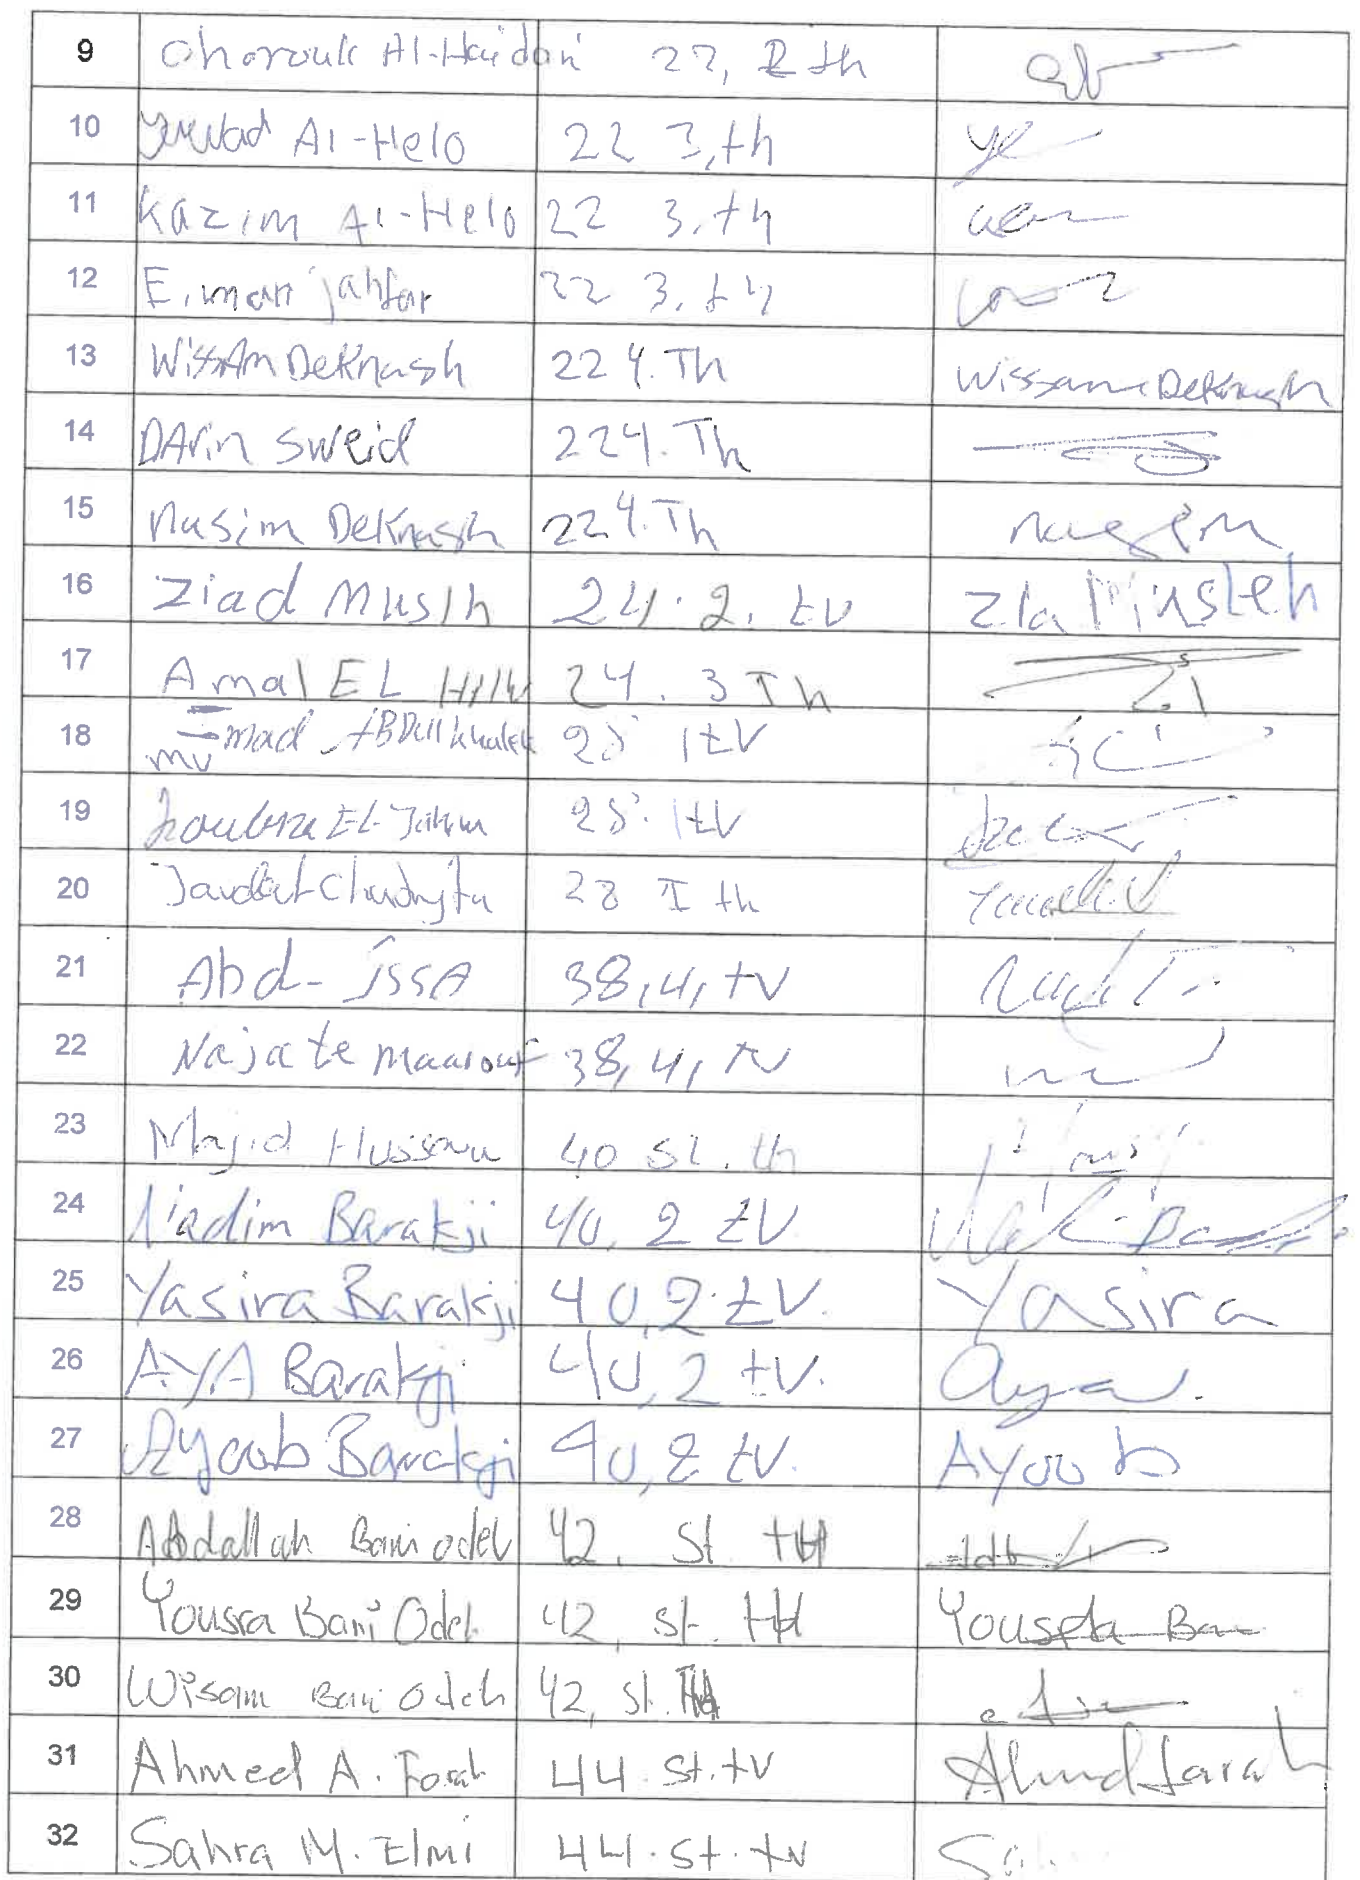 9 Chorouk Al-Haidari 22, 2 th
10 Al-Helo 22 3, th
11 Kazim Al-Helo 22 3. th
12 Eiman jahfar 22 3. th
13 WissAm DeKnash 22 4. Th Wissam DeKnash
14 DArin Sweid 22 4. Th
15 Nasim DeKnash 22 4. Th Nassim
16 Ziad Muslh 24. 2. tv Zia Musleh
17 Amal EL 24. 3 Th
18 Emad ABDulkhalek 28 1 tv
mv
19 EL- 28. 1 tv
20 Jaudat 28 I th
21 Abd- ÎssA 38, 4, tv
22 Najate maarouf 38, 4, tv
23 Majid Hussein 40 St. th
24 Nadim Barakji 40, 2 tv
25 Yasira Barakji 40, 2 tv. Yasira
26 AYA Barakji 40, 2 tv. Aya.
27 Ayoob Barakji 40, 2 tv. AYoob
28 Abdallah Bani odeh 42, St tH
29 Yousra Bani Odeh 42, St. tH Bani
30 Wisam Bani Odeh 42, St. TH
31 Ahmed A. Farah 44. St. tv Ahmed farah
32 Sahra M. Elmi 44. St. tv